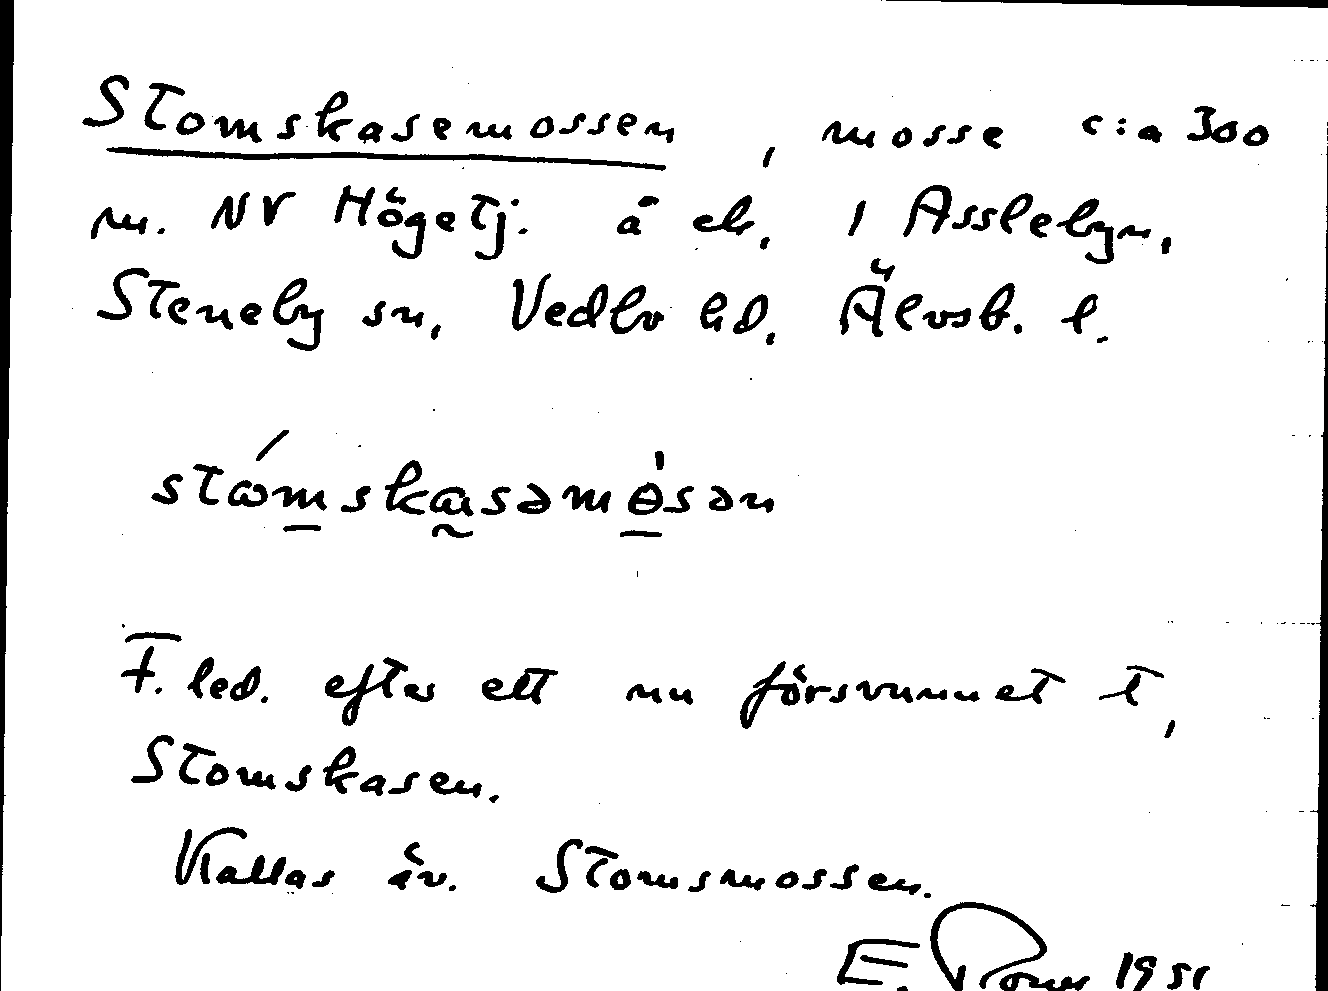 Stomskasemossen, mosse c:a 300
m. NV Högetj. å ek. i Asslebyn,
Steneby sn, Vedbo hd. Älvsb. l.
stώmskasəmɵ̀sən
F. led. efter ett nu försvunnet t,
Stomskasen.
Kallas äv. Stomsmossen.
E. 1951